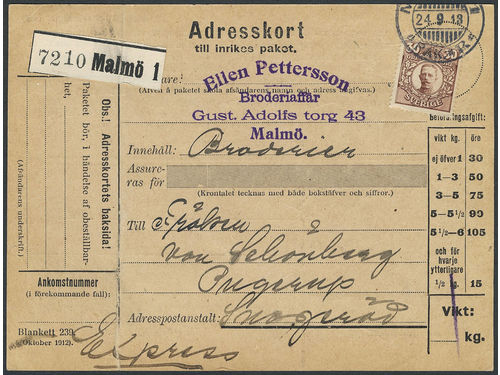 Adresskort
till inrikes paket.
24.9.13
7210 Malmö 1
SVERIGE
Ellen Pettersson
Broderiaffär
Gust. Adolfs torg 43
Malmö.
(Även å paketet skola afsändarens namn och adress utsättas.)
Innehåll: Broderier
Assure-
ras för
(Krontalet tecknas med både bokstäfver och siffror.)
Till Fröken
von Schönberg
Pugerup
Adresspostanstalt: Snogeröd
Obs.! Adresskortets baksida!
Paketet bör, i händelse af obeställbar-
het,
(Afsändarens underskrift.)
Ankomstnummer
(i förekommande fall):
Blankett 239
(Oktober 1912).
Express
befordringsafgift:
vikt kg. öre
ej öfver 1 30
1–3 50
3–5 75
5–5 1/2 90
5 1/2–6 105
och för
hvarje
ytterligare
1/2 kg. 15
Vikt:
kg.